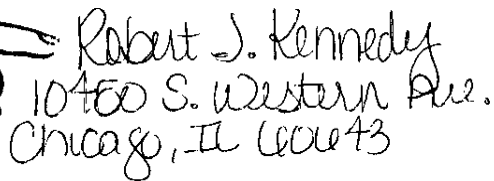 Robert J. Kennedy
10400 S. Western Ave.
Chicago, IL 60643